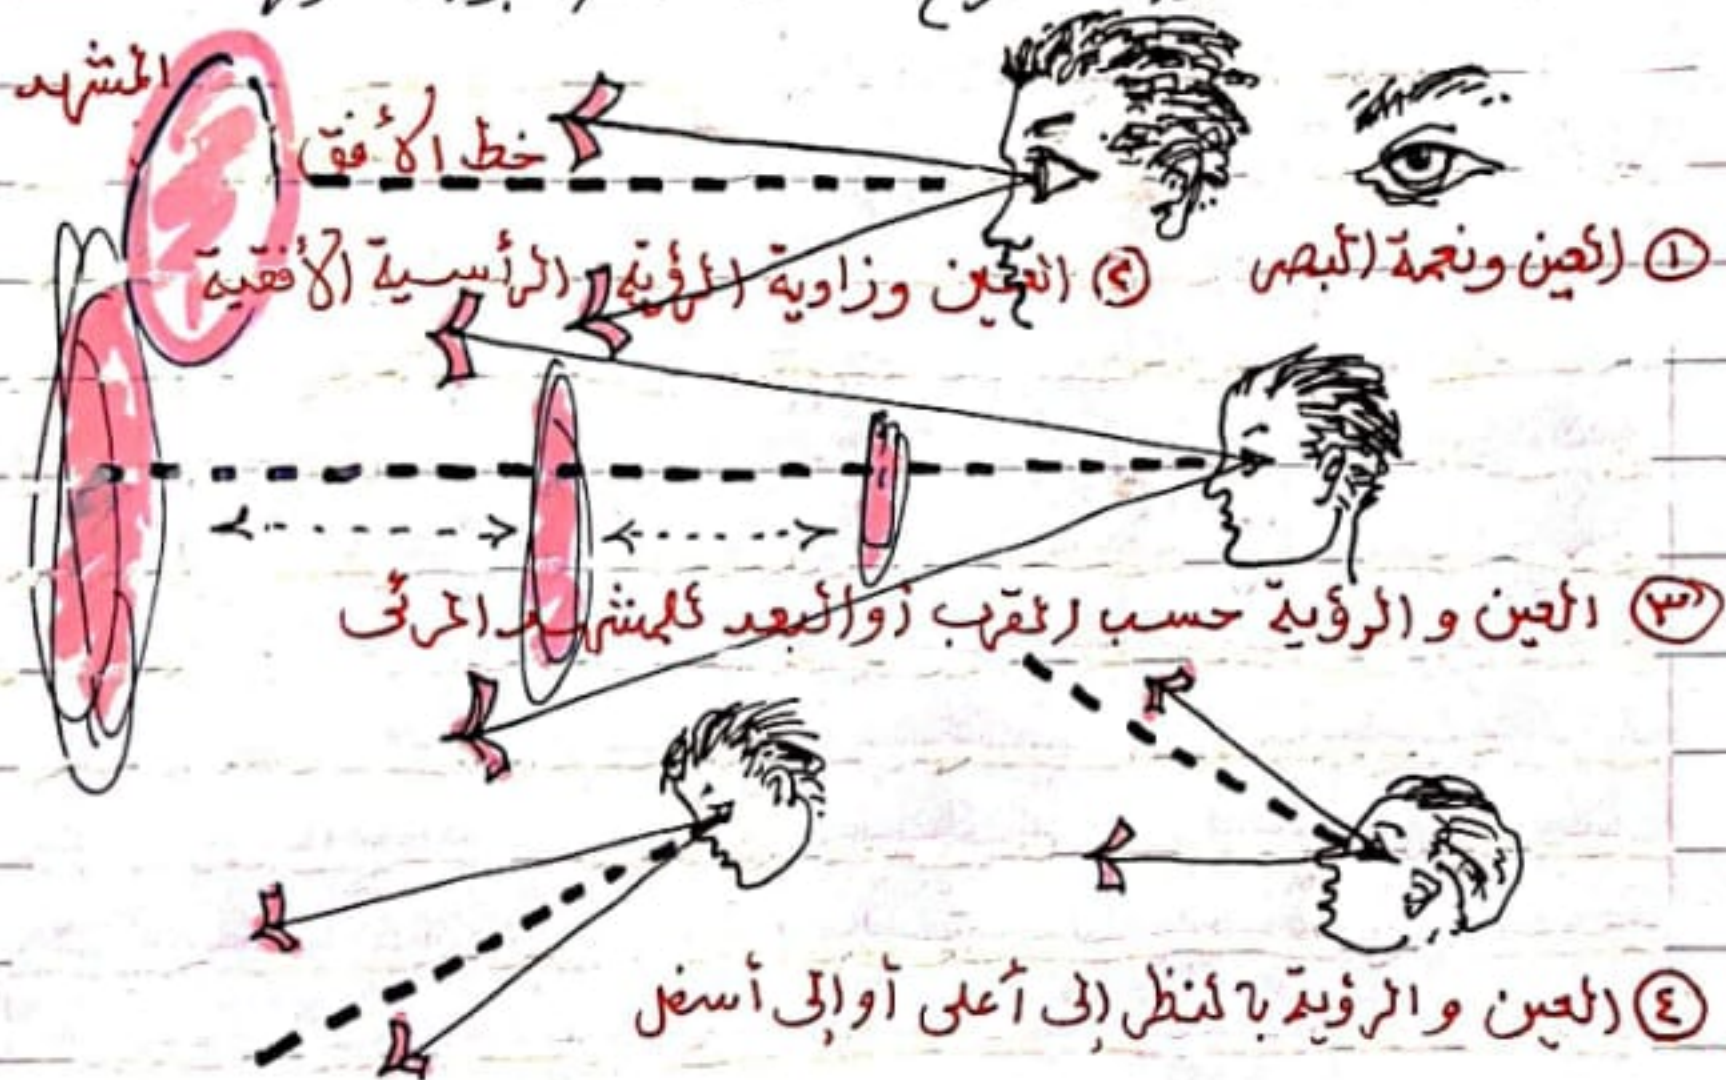 المشهد
خط الأفق
① العين ونعمة البصر
② العين وزاوية الرؤية الرأسية الأفقية
③ العين والرؤية حسب القرب أو البعد للمشهد المرئى
④ العين والرؤية بالنظر إلى أعلى أو إلى أسفل